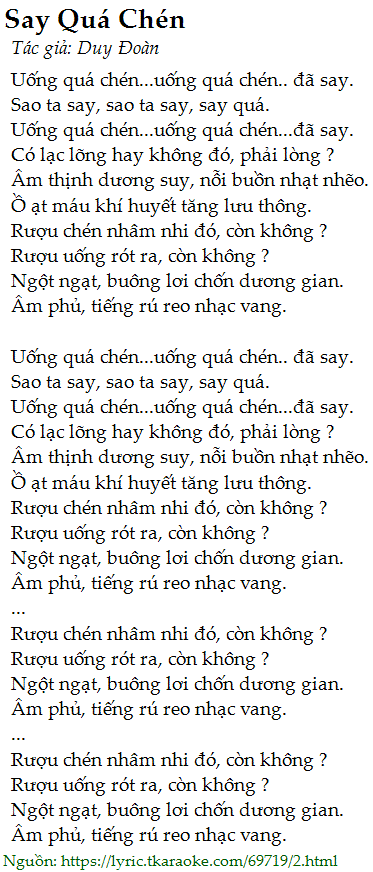 Say Quá Chén
Tác giả: Duy Đoàn
Uống quá chén...uống quá chén.. đã say.
Sao ta say, sao ta say, say quá.
Uống quá chén...uống quá chén...đã say.
Có lạc lõng hay không đó, phải lòng ?
Âm thịnh dương suy, nỗi buồn nhạt nhẽo.
Ồ ạt máu khí huyết tăng lưu thông.
Rượu chén nhâm nhi đó, còn không ?
Rượu uống rót ra, còn không ?
Ngột ngạt, buông lơi chốn dương gian.
Âm phủ, tiếng rú reo nhạc vang.

Uống quá chén...uống quá chén.. đã say.
Sao ta say, sao ta say, say quá.
Uống quá chén...uống quá chén...đã say.
Có lạc lõng hay không đó, phải lòng ?
Âm thịnh dương suy, nỗi buồn nhạt nhẽo.
Ồ ạt máu khí huyết tăng lưu thông.
Rượu chén nhâm nhi đó, còn không ?
Rượu uống rót ra, còn không ?
Ngột ngạt, buông lơi chốn dương gian.
Âm phủ, tiếng rú reo nhạc vang.
...
Rượu chén nhâm nhi đó, còn không ?
Rượu uống rót ra, còn không ?
Ngột ngạt, buông lơi chốn dương gian.
Âm phủ, tiếng rú reo nhạc vang.
...
Rượu chén nhâm nhi đó, còn không ?
Rượu uống rót ra, còn không ?
Ngột ngạt, buông lơi chốn dương gian.
Âm phủ, tiếng rú reo nhạc vang.
Nguồn: https://lyric.tkaraoke.com/69719/2.html